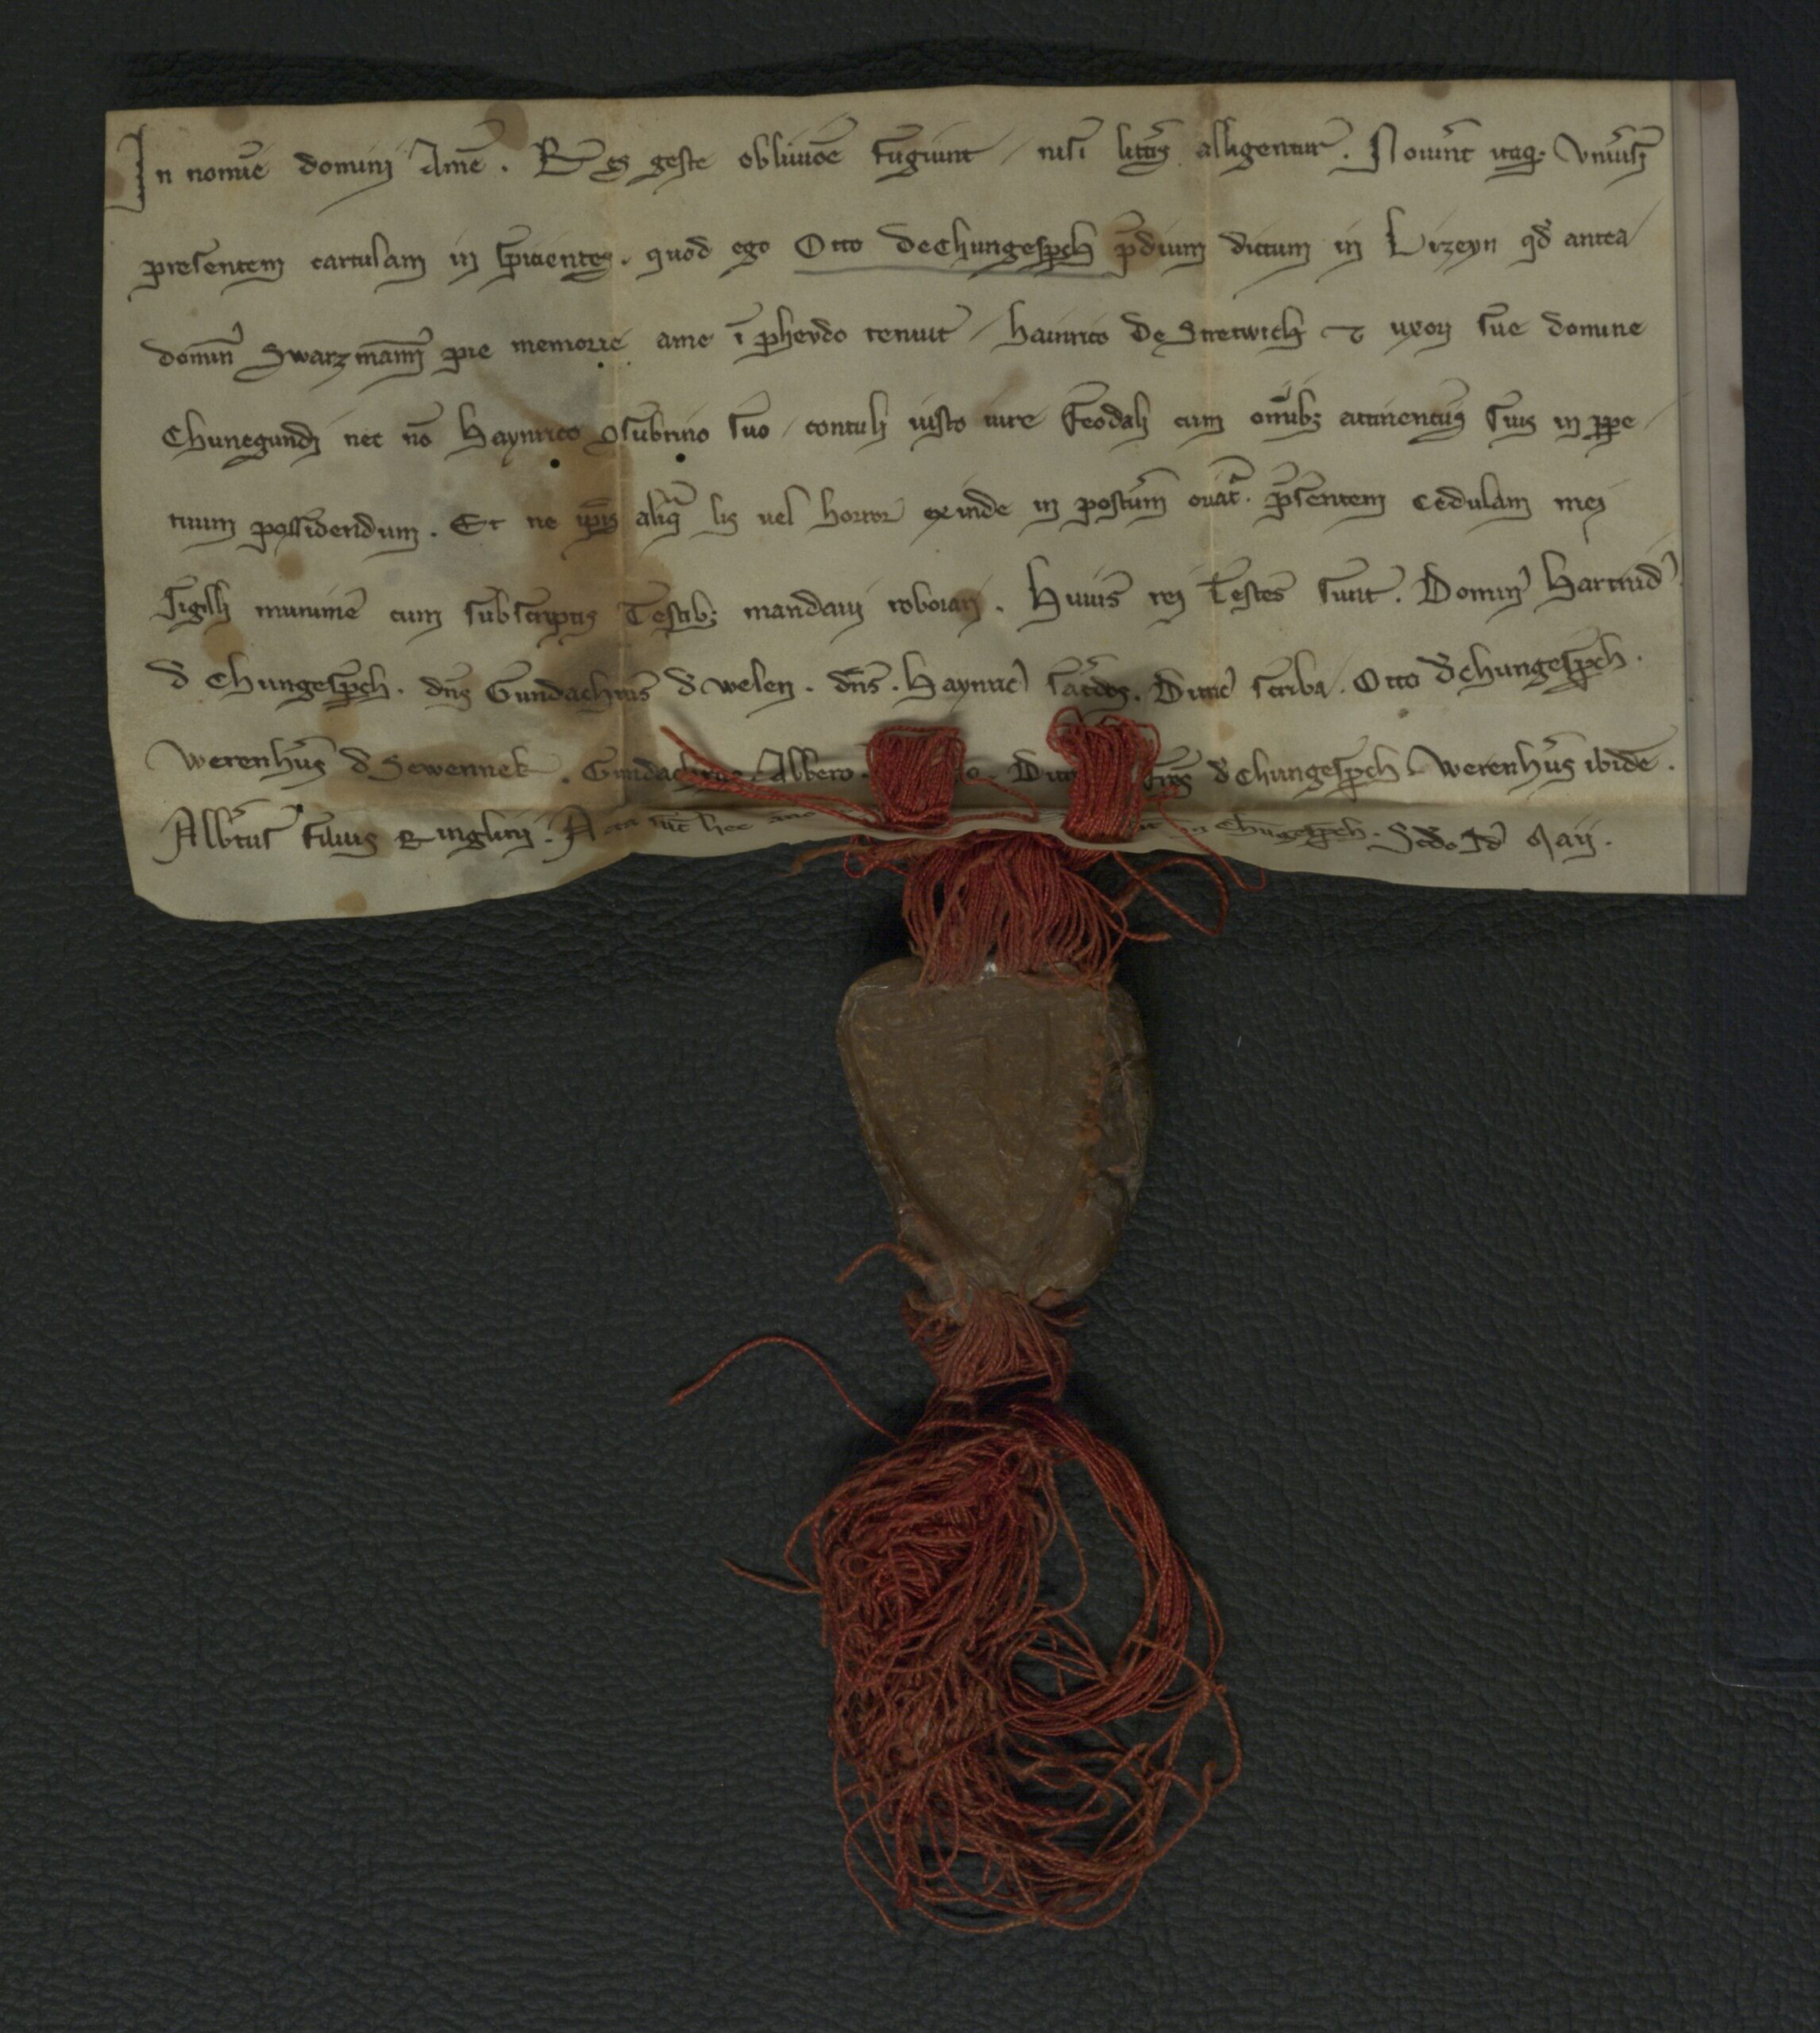 In nomīe dominj Amē . Res geste obliuiōe fugiunt / nisi litt̄is alligentur . Nouīnt itaq; vniūsi
presentem cartulam in spicientes . quod ego Otto de Chungesp̄ch p̄dium dictum in Lizeyn qd̄ antea
domin̄ Swarzmann̄ pie memorie a me ī pheydo tenuit / hainrico de Stretwich ⁊ uxori sue domine
Chunegundi nec nō Haynrico ꝯsubrino suo / contuli iusto iure feodali cum omībꝫ attinentiis suis in ꝑpe
tuum possidendum . Et ne ip̄is aliq̄ lis uel horror exinde in postum̄ oriat̄ . p̄sentem cedulam mei
sigilli munimē cum subscriptis Testibꝫ mandaui roborari . Huius rej testes sunt . Domin̄ Hartnid̄
d̄ Chungesp̄ch . dn̄s Gundacherus d̄ welen . dn̄s . Haynric̄ sac̄dos . Ditric̄ scriba . Otto d̄ chungesp̄ch .
werenhus̄ d̄ Sewennek . Gundacherus . Albero . d̄ Chungesp̄ch . werenhus̄ ibidē .
Alb̄tus filius Ringlini . Acta sūt hec in Chūgesp̄ch . Scd̄o Id̄ Maij .